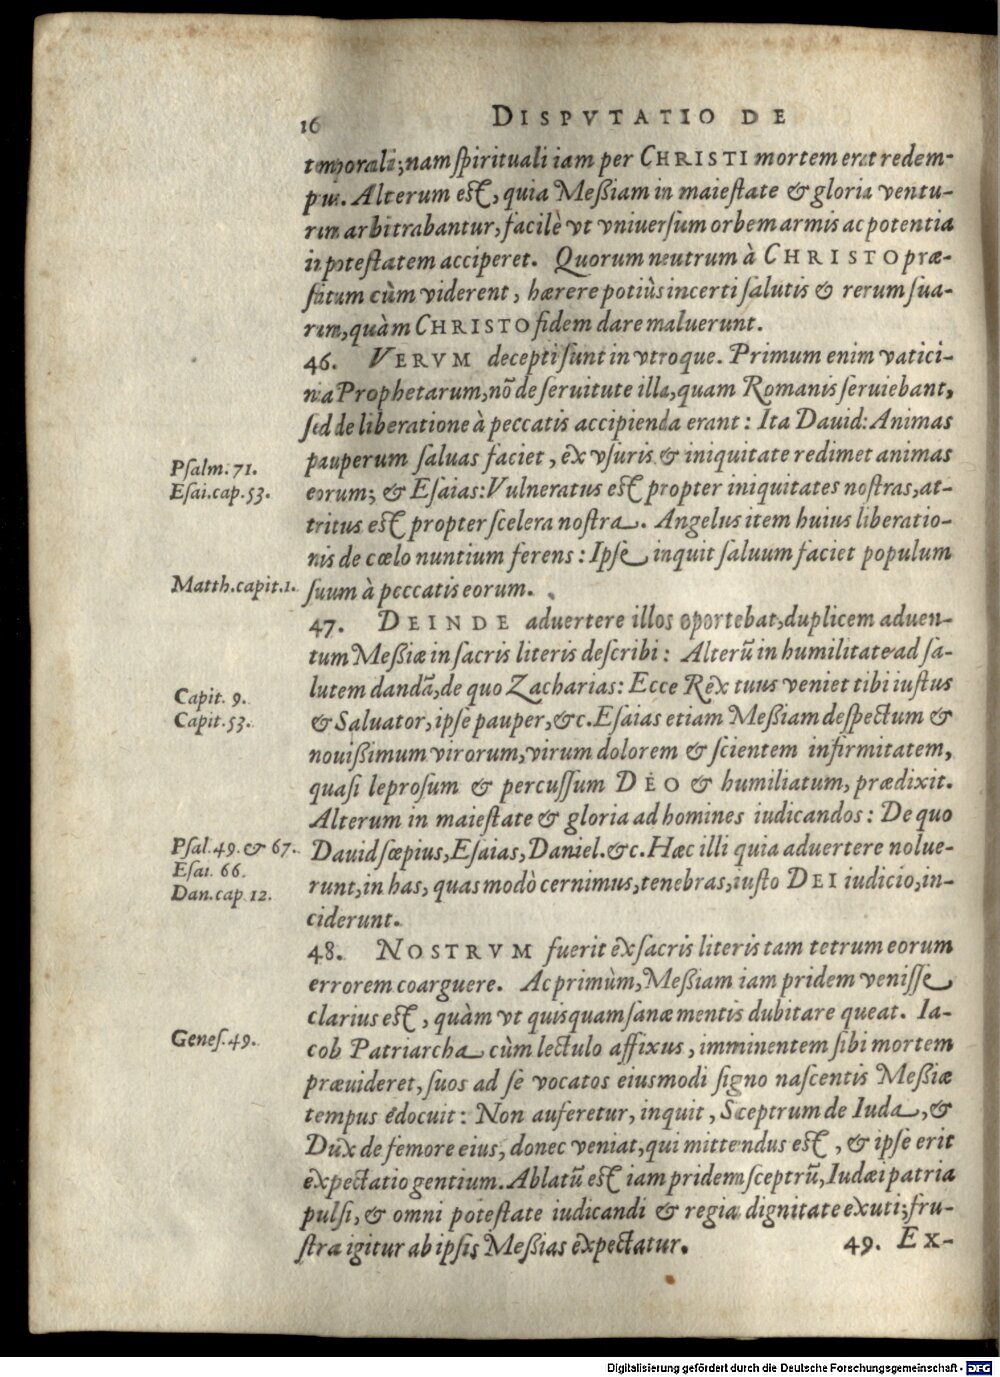 16 DISPVTATIO DE
temporali; nam spirituali iam per CHRISTI mortem erat redem-
pti. Alterum est, quia Meßiam in maiestate & gloria ventu-
rum arbitrabantur, facilè vt vniuersum orbem armis ac potentia
in potestatem acciperet. Quorum neutrum à CHRISTO præ-
stitum cùm viderent, hærere potiùs incerti salutis & rerum sua-
rum, quàm CHRISTO fidem dare maluerunt.
46. VERVM decepti sunt in vtroque. Primum enim vatici-
nia Prophetarum, nõ de seruitute illa, quam Romanis seruiebant,
sed de liberatione à peccatis accipienda erant: Ita Dauid: Animas
pauperum saluas faciet, ex vsuris & iniquitate redimet animas
Psalm. 71.
eorum; & Esaias: Vulneratus est propter iniquitates nostras, at-
Esai. cap. 53.
tritus est propter scelera nostra. Angelus item huius liberatio-
nis de cœlo nuntium ferens: Ipse inquit saluum faciet populum
suum à peccatis eorum.
Matth. capit. 1.
47. DEINDE aduertere illos oportebat, duplicem aduen-
tum Meßiæ in sacris literis describi: Alterũ in humilitate ad sa-
lutem dandã, de quo Zacharias: Ecce Rex tuus veniet tibi iustus
Capit. 9.
& Saluator, ipse pauper, &c. Esaias etiam Meßiam despectum &
Capit. 53.
nouißimum virorum, virum dolorem & scientem infirmitatem,
quasi leprosum & percussum DEO & humiliatum, prædixit.
Alterum in maiestate & gloria ad homines iudicandos: De quo
Dauid sæpius, Esaias, Daniel. &c. Hæc illi quia aduertere nolue-
Psal. 49. & 67.
Esai. 66.
runt, in has, quas modò cernimus, tenebras, iusto DEI iudicio, in-
Dan. cap. 12.
ciderunt.
48. NOSTRVM fuerit ex sacris literis tam tetrum eorum
errorem coarguere. Ac primùm, Meßiam iam pridem venisse
clarius est, quàm vt quisquam sanæ mentis dubitare queat. Ia-
cob Patriarcha cùm lectulo affixus, imminentem sibi mortem
Genes. 49.
præuideret, suos ad se vocatos eiusmodi signo nascentis Meßiæ
tempus edocuit: Non auferetur, inquit, Sceptrum de Iuda, &
Dux de femore eius, donec veniat, qui mittendus est, & ipse erit
expectatio gentium. Ablatũ est iam pridem sceptrũ, Iudæi patria
pulsi, & omni potestate iudicandi & regia dignitate exuti; fru-
stra igitur ab ipsis Meßias expectatur.
49. Ex-
Digitalisierung gefördert durch die Deutsche Forschungsgemeinschaft - DFG